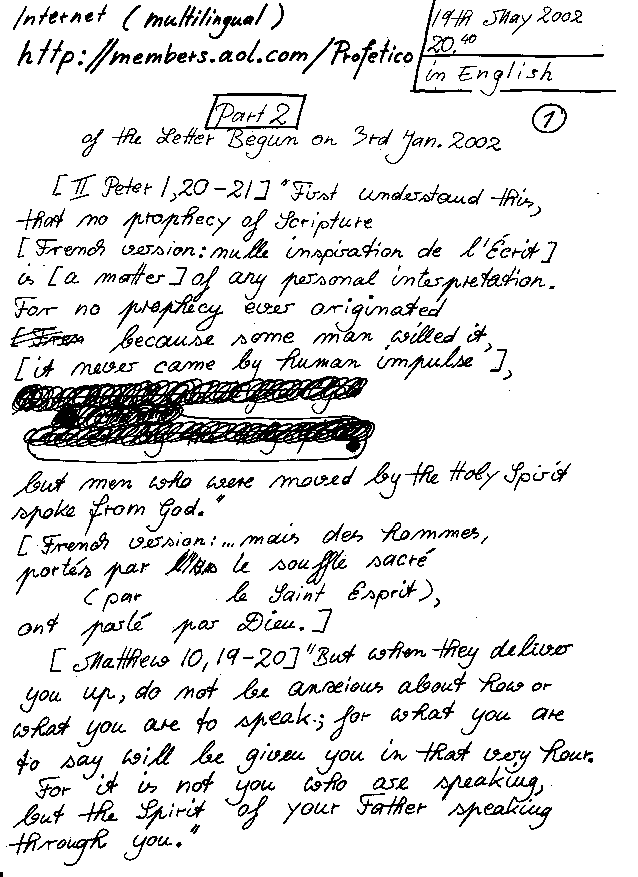 Internet (multilingual)
http://members.aol.com/Profetico
19th May 2002
20.40
in English
1
Part 2
of the Letter Begun on 3rd Jan. 2002
[II Peter 1,20-21] "First understand this,
that no prophecy of Scripture
[French version: nulle inspiration de l'Écrit]
is [a matter] of any personal interpretation.
For no prophecy ever originated
because some man willed it,
[it never came by human impulse],
but men who were moved by the Holy Spirit
spoke from God."
[French version: ... mais des hommes,
portés par le souffle sacré
(par le Saint Esprit),
ont parlé par Dieu.]
[Matthew 10,19-20] "But when they deliver
you up, do not be anxious about how or
what you are to speak; for what you are
to say will be given you in that very hour.
For it is not you who are speaking,
but the Spirit of your Father speaking
through you."